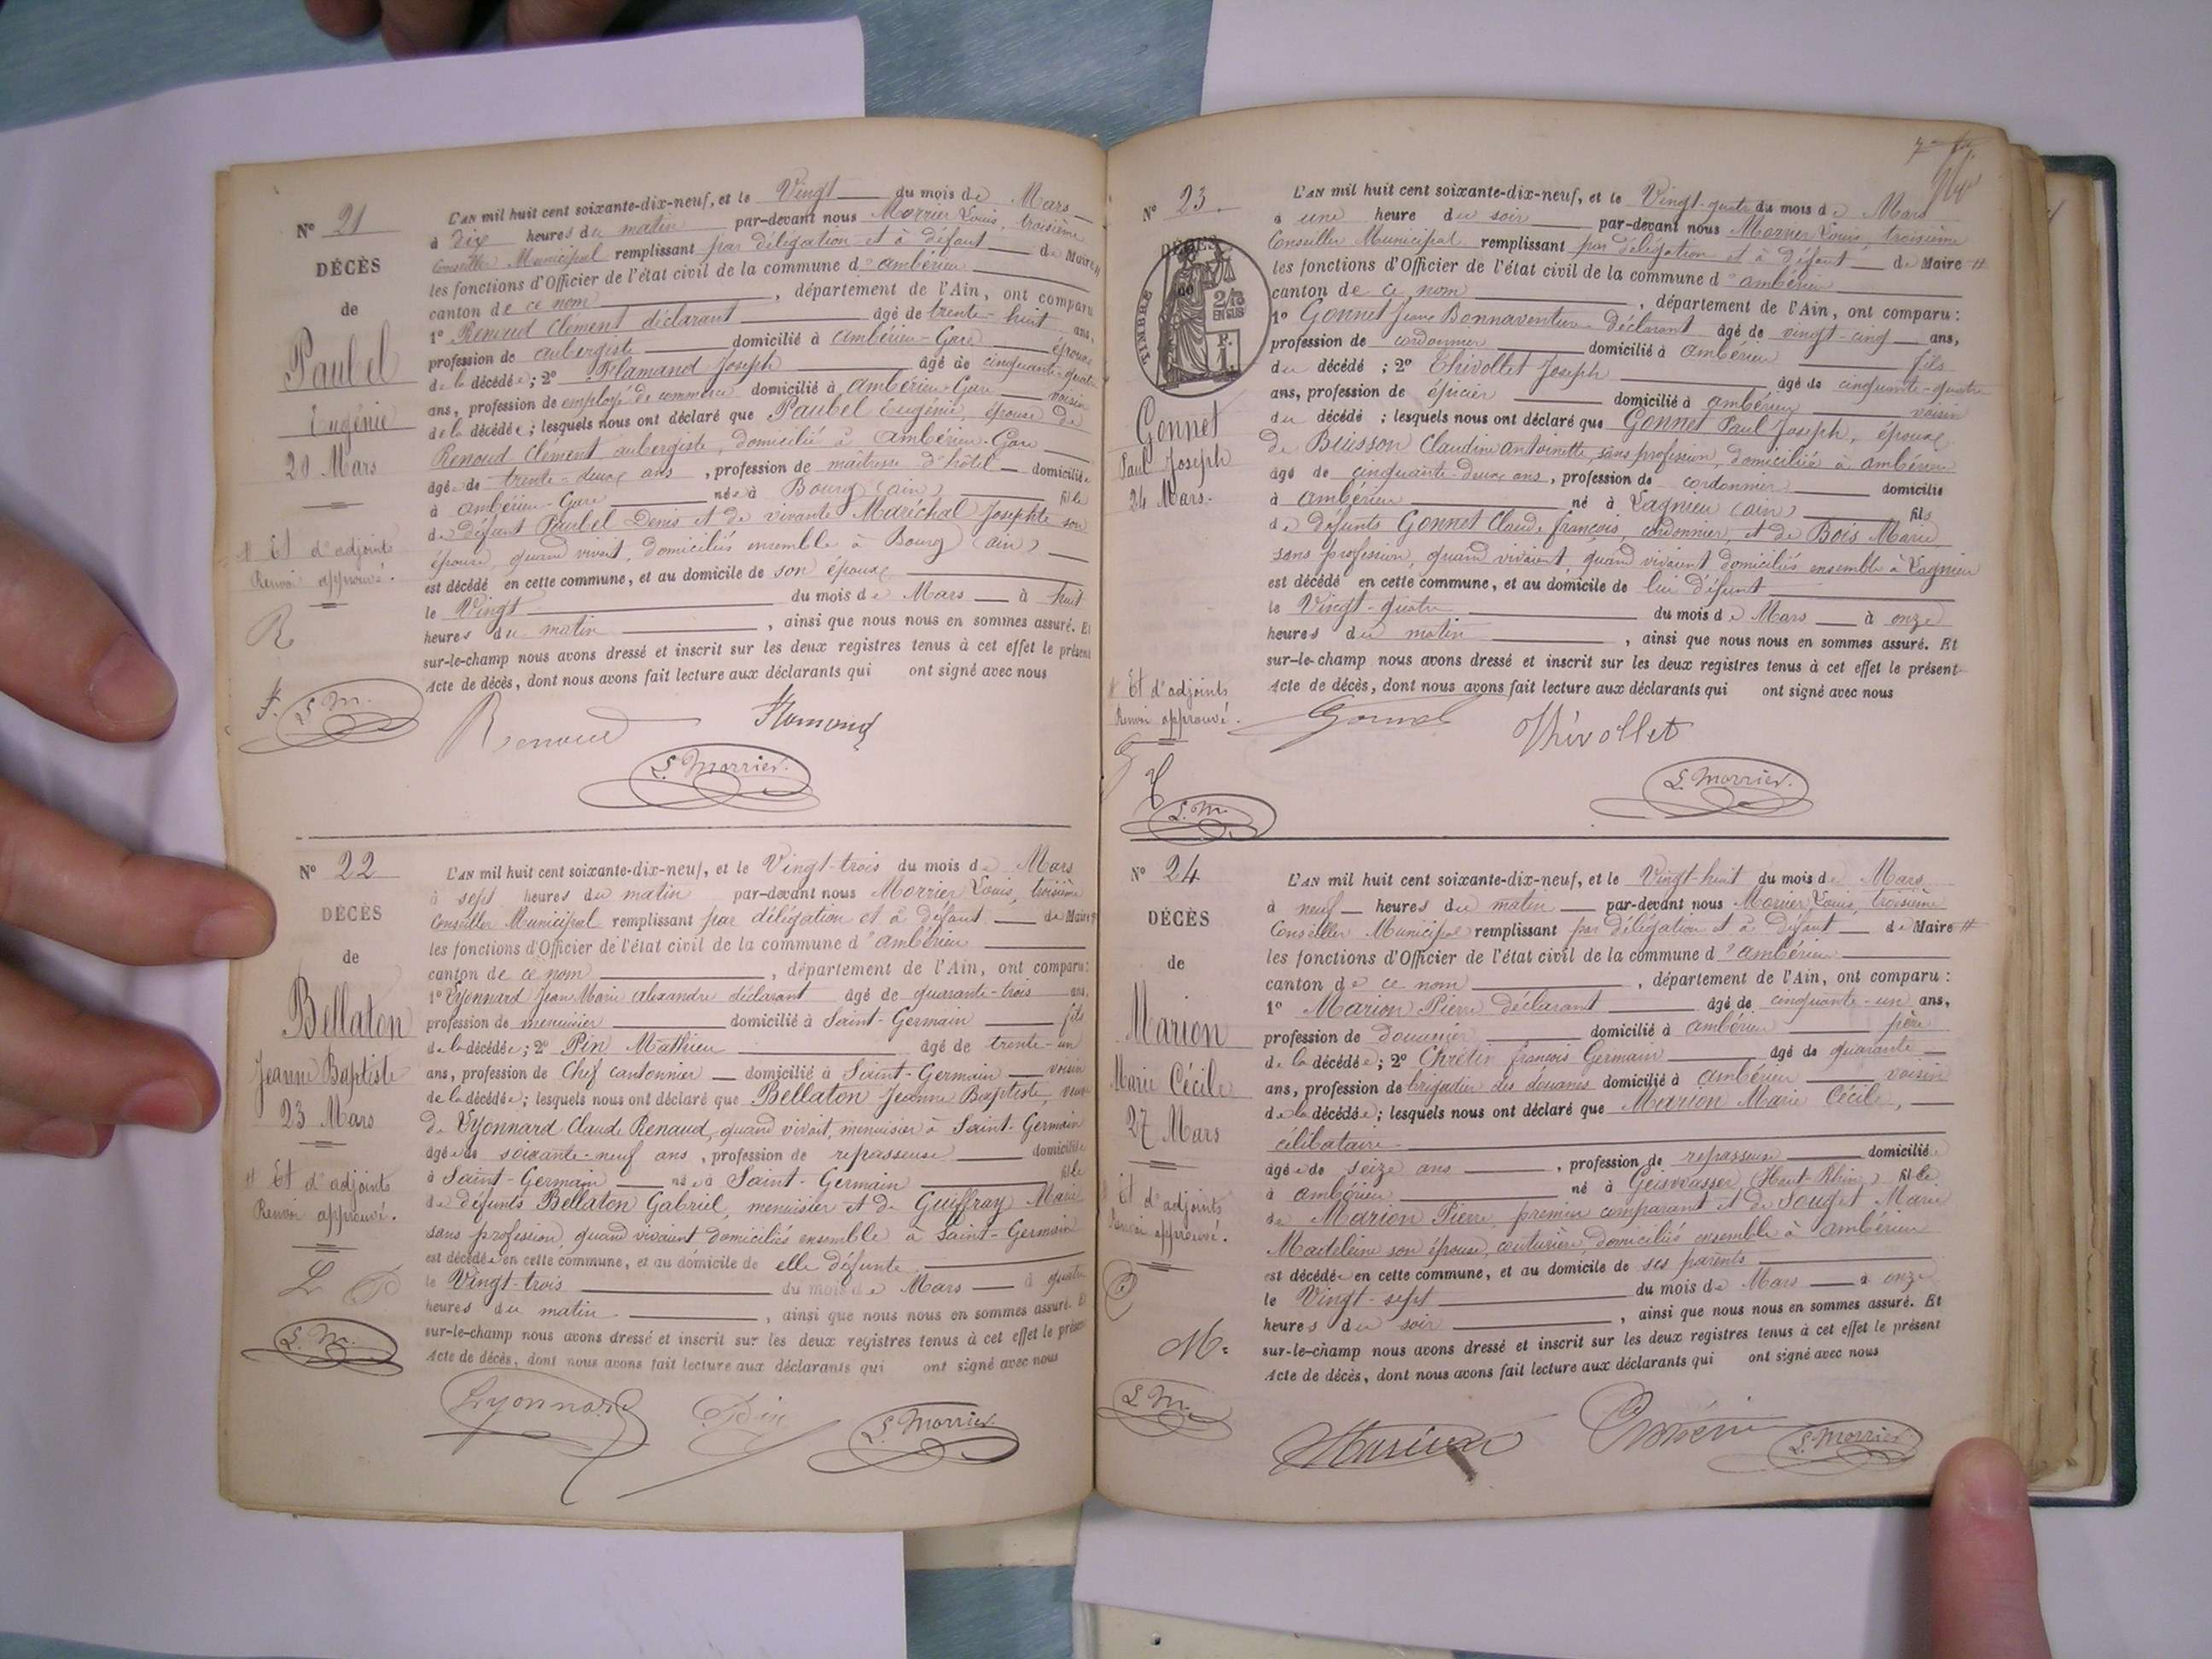 Nº 21
DÉCÈS
de
Paubel
Eugénie
20 Mars
# Et d'adjoints
Renvoi approuvé.
R
F. L. M.
L'AN mil huit cent soixante-dix-neuf, et le Vingt du mois de Mars
à dix heures du matin par-devant nous Morrier Louis, troisième
Conseiller Municipal remplissant par délégation et à défaut de Maire #
les fonctions d'Officier de l'état civil de la commune d'ambérieu
canton de ce nom , département de l'Ain, ont comparu
1º Renoud Clément déclarant âgé de trente-huit ans,
profession de aubergiste domicilié à ambérieu-Gare époux
de la décédée ; 2º Flamand Joseph âgé de cinquante-quatre
ans, profession de employé de commerce domicilié à ambérieu-Gare voisin
de la décédée ; lesquels nous ont déclaré que Paubel Eugénie, épouse de
Renoud Clément aubergiste, domicilié à ambérieu-Gare
âgée de trente-deux ans , profession de maîtresse d'hôtel domiciliée
à ambérieu-Gare née à Bourg (ain) fille
de défunt Paubel Denis et de vivante Maréchal Josephte son
épouse, quand vivait, domiciliés ensemble à Bourg (ain)
est décédé en cette commune, et au domicile de son époux
le Vingt du mois de Mars à huit
heures du matin , ainsi que nous nous en sommes assuré. Et
sur-le-champ nous avons dressé et inscrit sur les deux registres tenus à cet effet le présent
Acte de décès, dont nous avons fait lecture aux déclarants qui ont signé avec nous
Renoud Flamand
L. Morrier.
Nº 22
DÉCÈS
de
Bellaton
Jeanne Baptiste
23 Mars
# Et d'adjoints
Renvoi approuvé.
L P
L. M.
L'AN mil huit cent soixante-dix-neuf, et le Vingt-trois du mois de Mars
à sept heures du matin par-devant nous Morrier Louis, troisième
Conseiller Municipal remplissant par délégation et à défaut de Maire #
les fonctions d'Officier de l'état civil de la commune d'ambérieu
canton de ce nom , département de l'Ain, ont comparu :
1º Lyonnard Jean Marie alexandre déclarant âgé de quarante-trois ans,
profession de menuisier domicilié à Saint-Germain fils
de la décédée ; 2º Pin Mathieu âgé de trente-un
ans, profession de Chef cantonnier domicilié à Saint-Germain voisin
de la décédée ; lesquels nous ont déclaré que Bellaton Jeanne Baptiste, veuve
de Lyonnard Claude Renaud, quand vivait, menuisier à Saint-Germain
âgée de soixante-neuf ans , profession de repasseuse domiciliée
à Saint-Germain née à Saint-Germain fille
de défunts Bellaton Gabriel, menuisier et de Guiffray Marie
sans profession quand vivaient domiciliés ensemble à Saint-Germain
est décédée en cette commune, et au domicile de elle défunte
le Vingt-trois du mois de Mars à quatre
heures du matin , ainsi que nous nous en sommes assuré. Et
sur-le-champ nous avons dressé et inscrit sur les deux registres tenus à cet effet le présent
Acte de décès, dont nous avons fait lecture aux déclarants qui ont signé avec nous
Lyonnard Pin L. Morrier.
Nº 23.
DÉCÈS
de
TIMBRE
2/10
EN SUS
Gonnet
Paul Joseph
24 Mars.
# Et d'adjoints
Renvoi approuvé.
G
T
L. M.
L'AN mil huit cent soixante-dix-neuf, et le Vingt-quatre du mois de Mars
à une heure du soir par-devant nous Morrier Louis, troisième
Conseiller Municipal remplissant par délégation et à défaut de Maire #
les fonctions d'Officier de l'état civil de la commune d'ambérieu
canton de ce nom , département de l'Ain, ont comparu :
1º Gonnet Jean Bonnaventure déclarant âgé de vingt-cinq ans,
profession de cordonnier domicilié à ambérieu fils
du décédé ; 2º Thivollet Joseph âgé de cinquante-quatre
ans, profession de épicier domicilié à ambérieu voisin
du décédé ; lesquels nous ont déclaré que Gonnet Paul Joseph, époux
de Buisson Claudine antoinette, sans profession, domiciliée à ambérieu
âgé de cinquante-deux ans , profession de cordonnier domicilié
à ambérieu né à Lagnieu (ain) fils
de défunts Gonnet Claude françois, cordonnier, et de Bois Marie
sans profession, quand vivaient, quand vivaient domiciliés ensemble à Lagnieu
est décédé en cette commune, et au domicile de lui défunt
le Vingt-quatre du mois de Mars à onze
heures du matin , ainsi que nous nous en sommes assuré. Et
sur-le-champ nous avons dressé et inscrit sur les deux registres tenus à cet effet le présent
Acte de décès, dont nous avons fait lecture aux déclarants qui ont signé avec nous
Gonnet Thivollet
L. Morrier.
Nº 24
DÉCÈS
de
Marion
Marie Cécile
27 Mars
# Et d'adjoints
Renvoi approuvé.
M.
L. M.
L'AN mil huit cent soixante-dix-neuf, et le Vingt-huit du mois de Mars
à neuf heures du matin par-devant nous Morrier Louis, troisième
Conseiller Municipal remplissant par délégation et à défaut de Maire #
les fonctions d'Officier de l'état civil de la commune d'ambérieu
canton de ce nom , département de l'Ain, ont comparu :
1º Marion Pierre déclarant âgé de cinquante-un ans,
profession de Douanier domicilié à ambérieu père
de la décédée ; 2º Chrétin françois Germain âgé de quarante
ans, profession de brigadier des douanes domicilié à ambérieu voisin
de la décédée ; lesquels nous ont déclaré que Marion Marie Cécile,
célibataire
âgée de seize ans , profession de repasseuse domiciliée
à ambérieu né à Geiswasser (Haut-Rhin) fille
de Marion Pierre, premier comparant et de Souget Marie
Madeleine son épouse, couturière, domiciliés ensemble à ambérieu
est décédée en cette commune, et au domicile de ses parents
le Vingt-sept du mois de Mars à onze
heures du soir , ainsi que nous nous en sommes assuré. Et
sur-le-champ nous avons dressé et inscrit sur les deux registres tenus à cet effet le présent
Acte de décès, dont nous avons fait lecture aux déclarants qui ont signé avec nous
Marion Chrétin L. Morrier